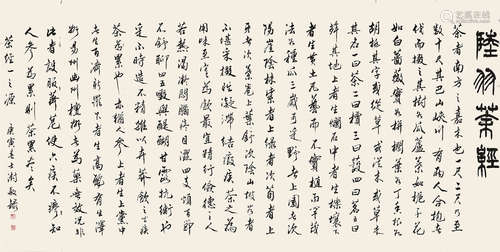 陸羽茶經
茶者南方之嘉木也一尺二尺乃至
數十尺其巴山峽川有兩人合抱者
伐而掇之其樹如瓜蘆葉如梔子花
如白薔薇實如栟櫚葉如丁香根如
胡桃其字或從草或從木或草木并
其名一曰茶二曰檟三曰蔎四曰茗五曰
荈其地上者生爛石中者生櫟壤下
者生黃土凡藝而不實植而罕茂
法如種瓜三歲可採野者上園者次
陽崖陰林紫者上綠者次筍者上
牙者次葉卷上葉舒次陰山坡谷者
不堪採掇性凝滯結瘕疾茶之為
用味至寒為飲最宜精行儉德之人
若熱渴凝悶腦疼目澀四支煩百節
不舒聊四五啜與醍醐甘露抗衡也
采不時造不精雜以卉莽飲之成疾
茶為累也亦猶人參上者生上黨中
者生百濟新羅下者生高麗有生澤
州易州幽州檀州者為藥無效況非
此者設服薺苨使六疾不瘳知
人參為累則茶累盡矣
茶經一之源 庚寅春